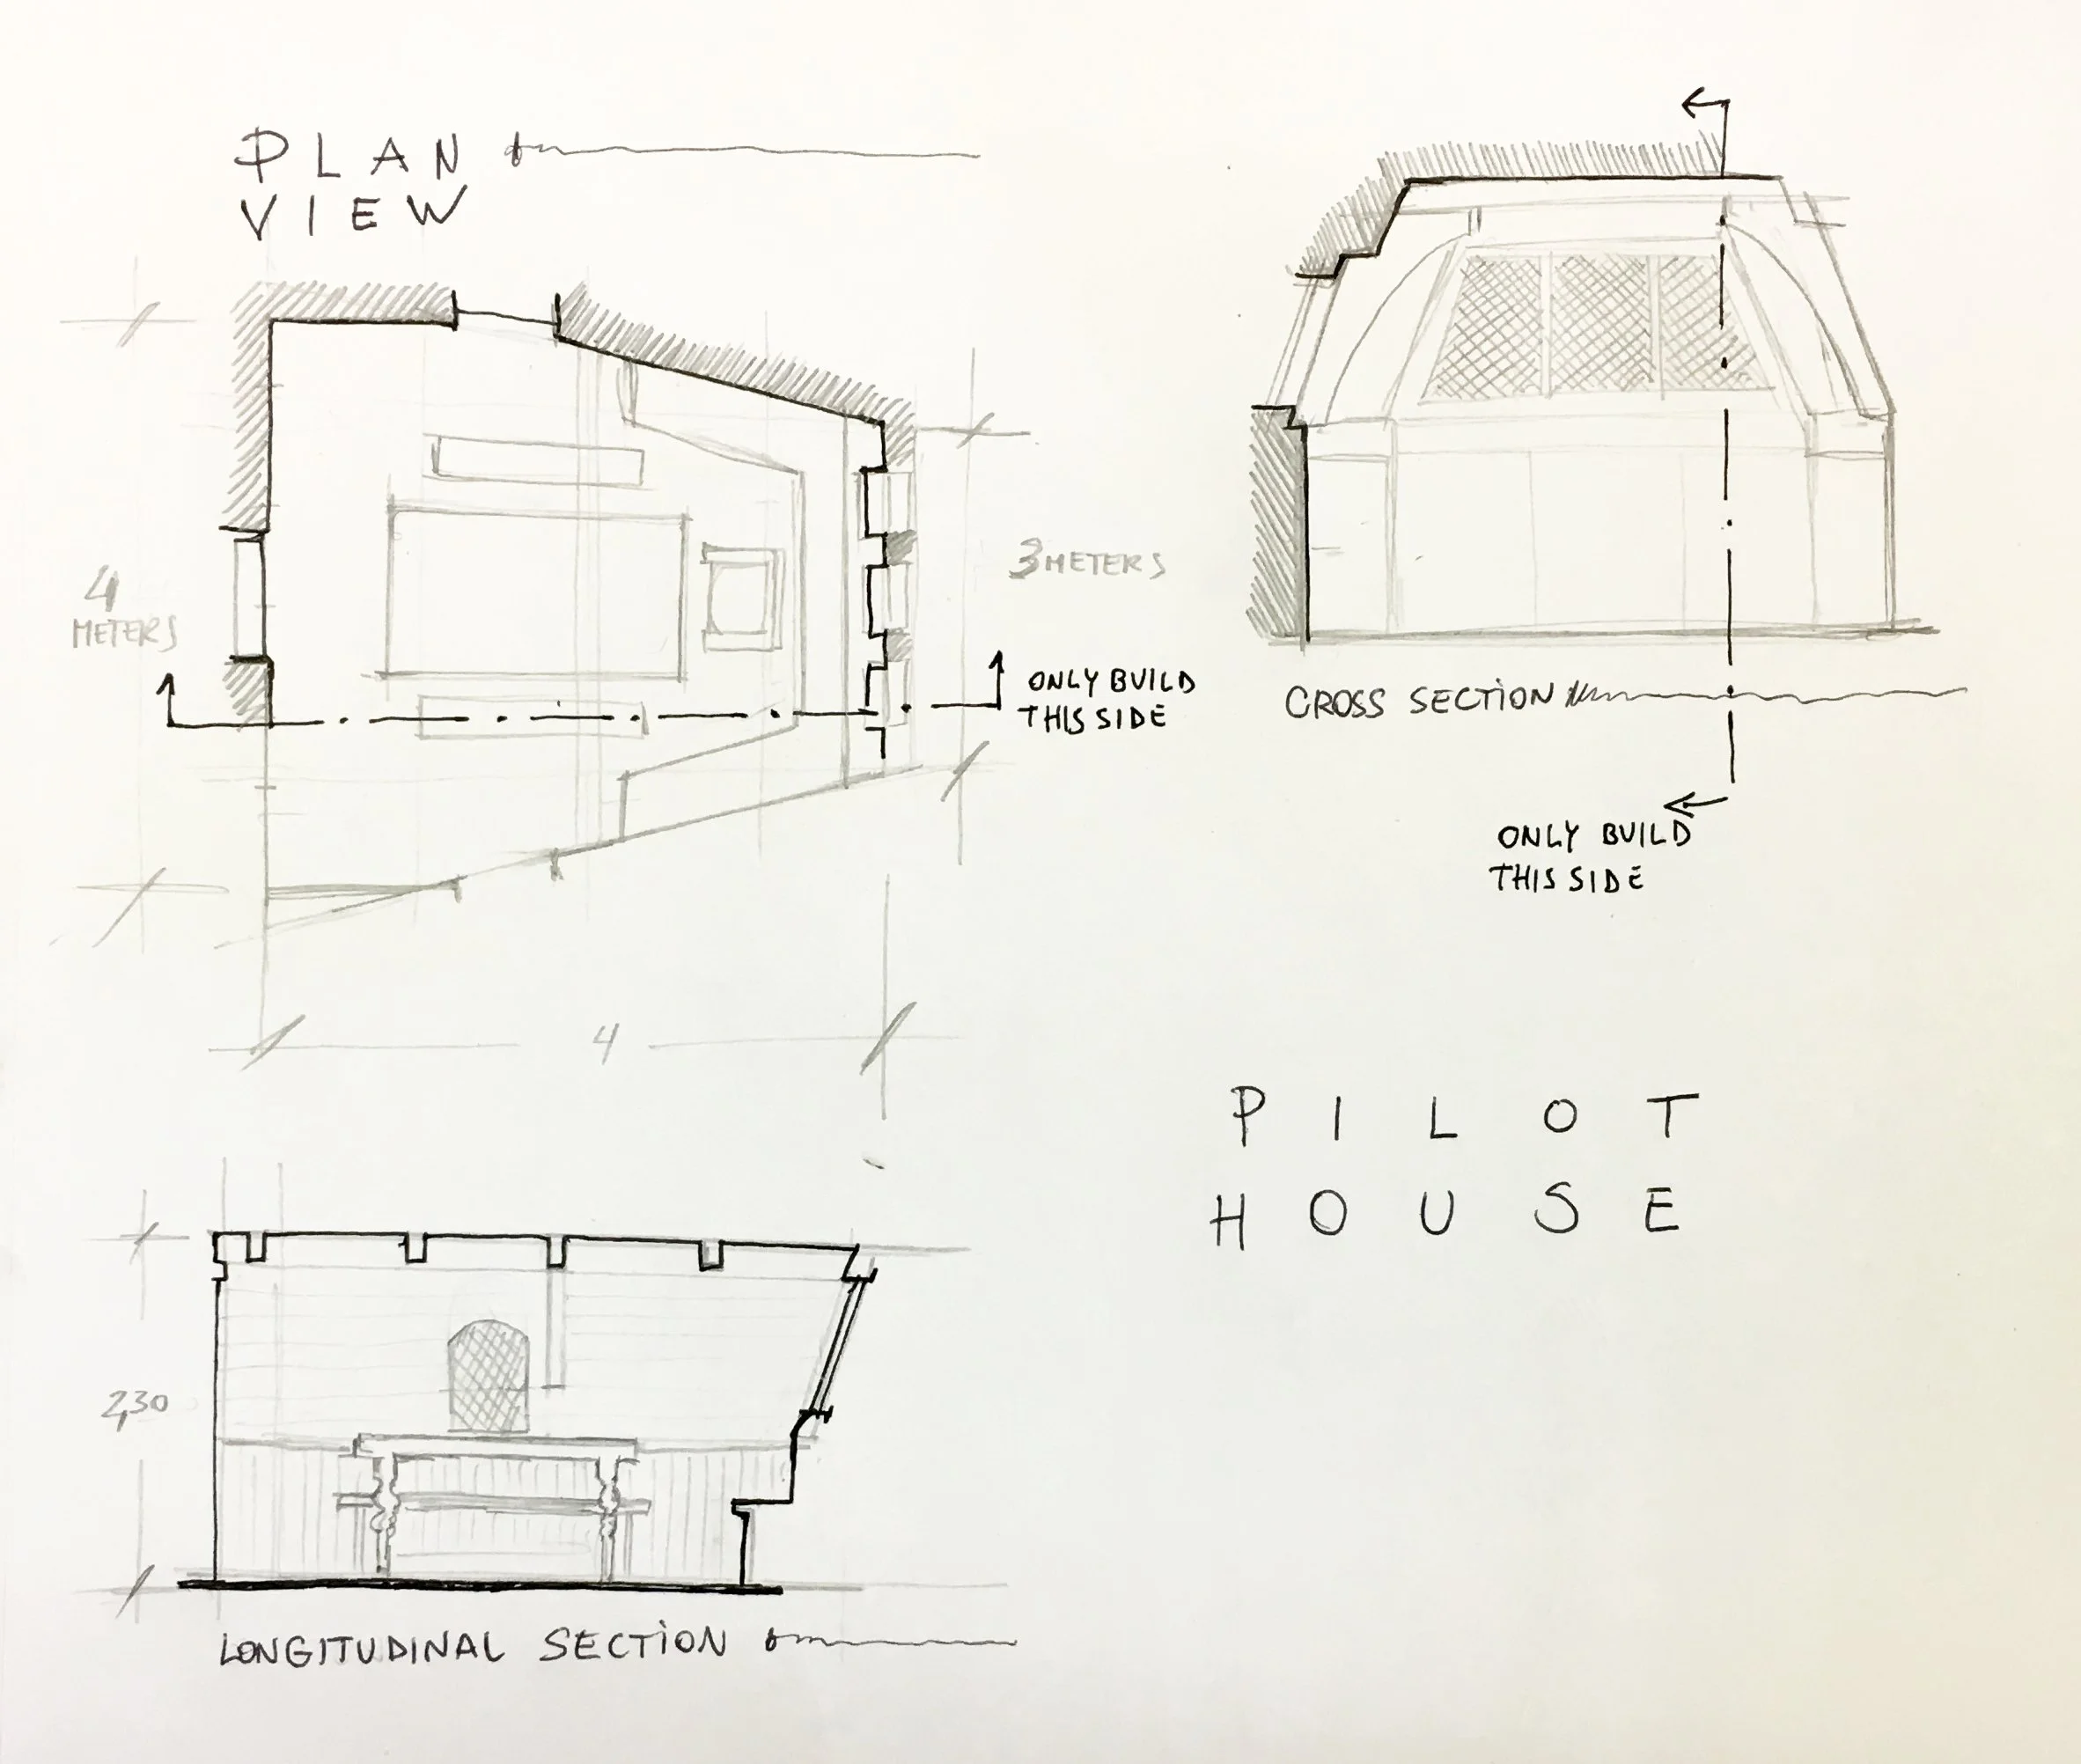 PLAN
VIEW
4
METERS
3 METERS
ONLY BUILD
THIS SIDE
4
CROSS SECTION
ONLY BUILD
THIS SIDE
PILOT
HOUSE
2,30
LONGITUDINAL SECTION